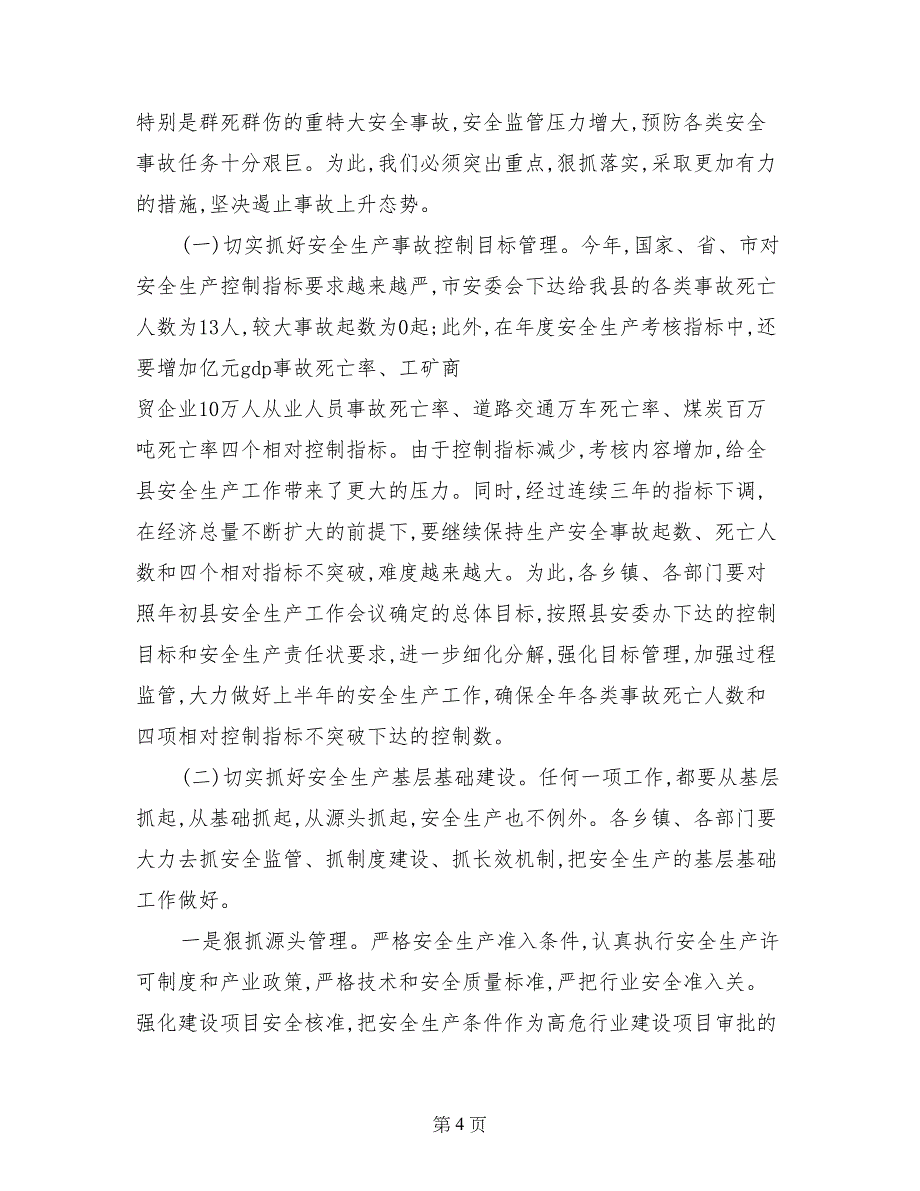 特别是群死群伤的重特大安全事故,安全监管压力增大,预防各类安全
事故任务十分艰巨。为此,我们必须突出重点,狠抓落实,采取更加有力
的措施,坚决遏止事故上升态势。
(一)切实抓好安全生产事故控制目标管理。今年,国家、省、市对
安全生产控制指标要求越来越严,市安委会下达给我县的各类事故死亡
人数为13人,较大事故起数为0起;此外,在年度安全生产考核指标中,还
要增加亿元gdp事故死亡率、工矿商
贸企业10万人从业人员事故死亡率、道路交通万车死亡率、煤炭百万
吨死亡率四个相对控制指标。由于控制指标减少,考核内容增加,给全
县安全生产工作带来了更大的压力。同时,经过连续三年的指标下调,
在经济总量不断扩大的前提下,要继续保持生产安全事故起数、死亡人
数和四个相对指标不突破,难度越来越大。为此,各乡镇、各部门要对
照年初县安全生产工作会议确定的总体目标,按照县安委办下达的控制
目标和安全生产责任状要求,进一步细化分解,强化目标管理,加强过程
监管,大力做好上半年的安全生产工作,确保全年各类事故死亡人数和
四项相对控制指标不突破下达的控制数。
(二)切实抓好安全生产基层基础建设。任何一项工作,都要从基层
抓起,从基础抓起,从源头抓起,安全生产也不例外。各乡镇、各部门要
大力去抓安全监管、抓制度建设、抓长效机制,把安全生产的基层基础
工作做好。
一是狠抓源头管理。严格安全生产准入条件,认真执行安全生产许
可制度和产业政策,严格技术和安全质量标准,严把行业安全准入关。
强化建设项目安全核准,把安全生产条件作为高危行业建设项目审批的
第 4 页